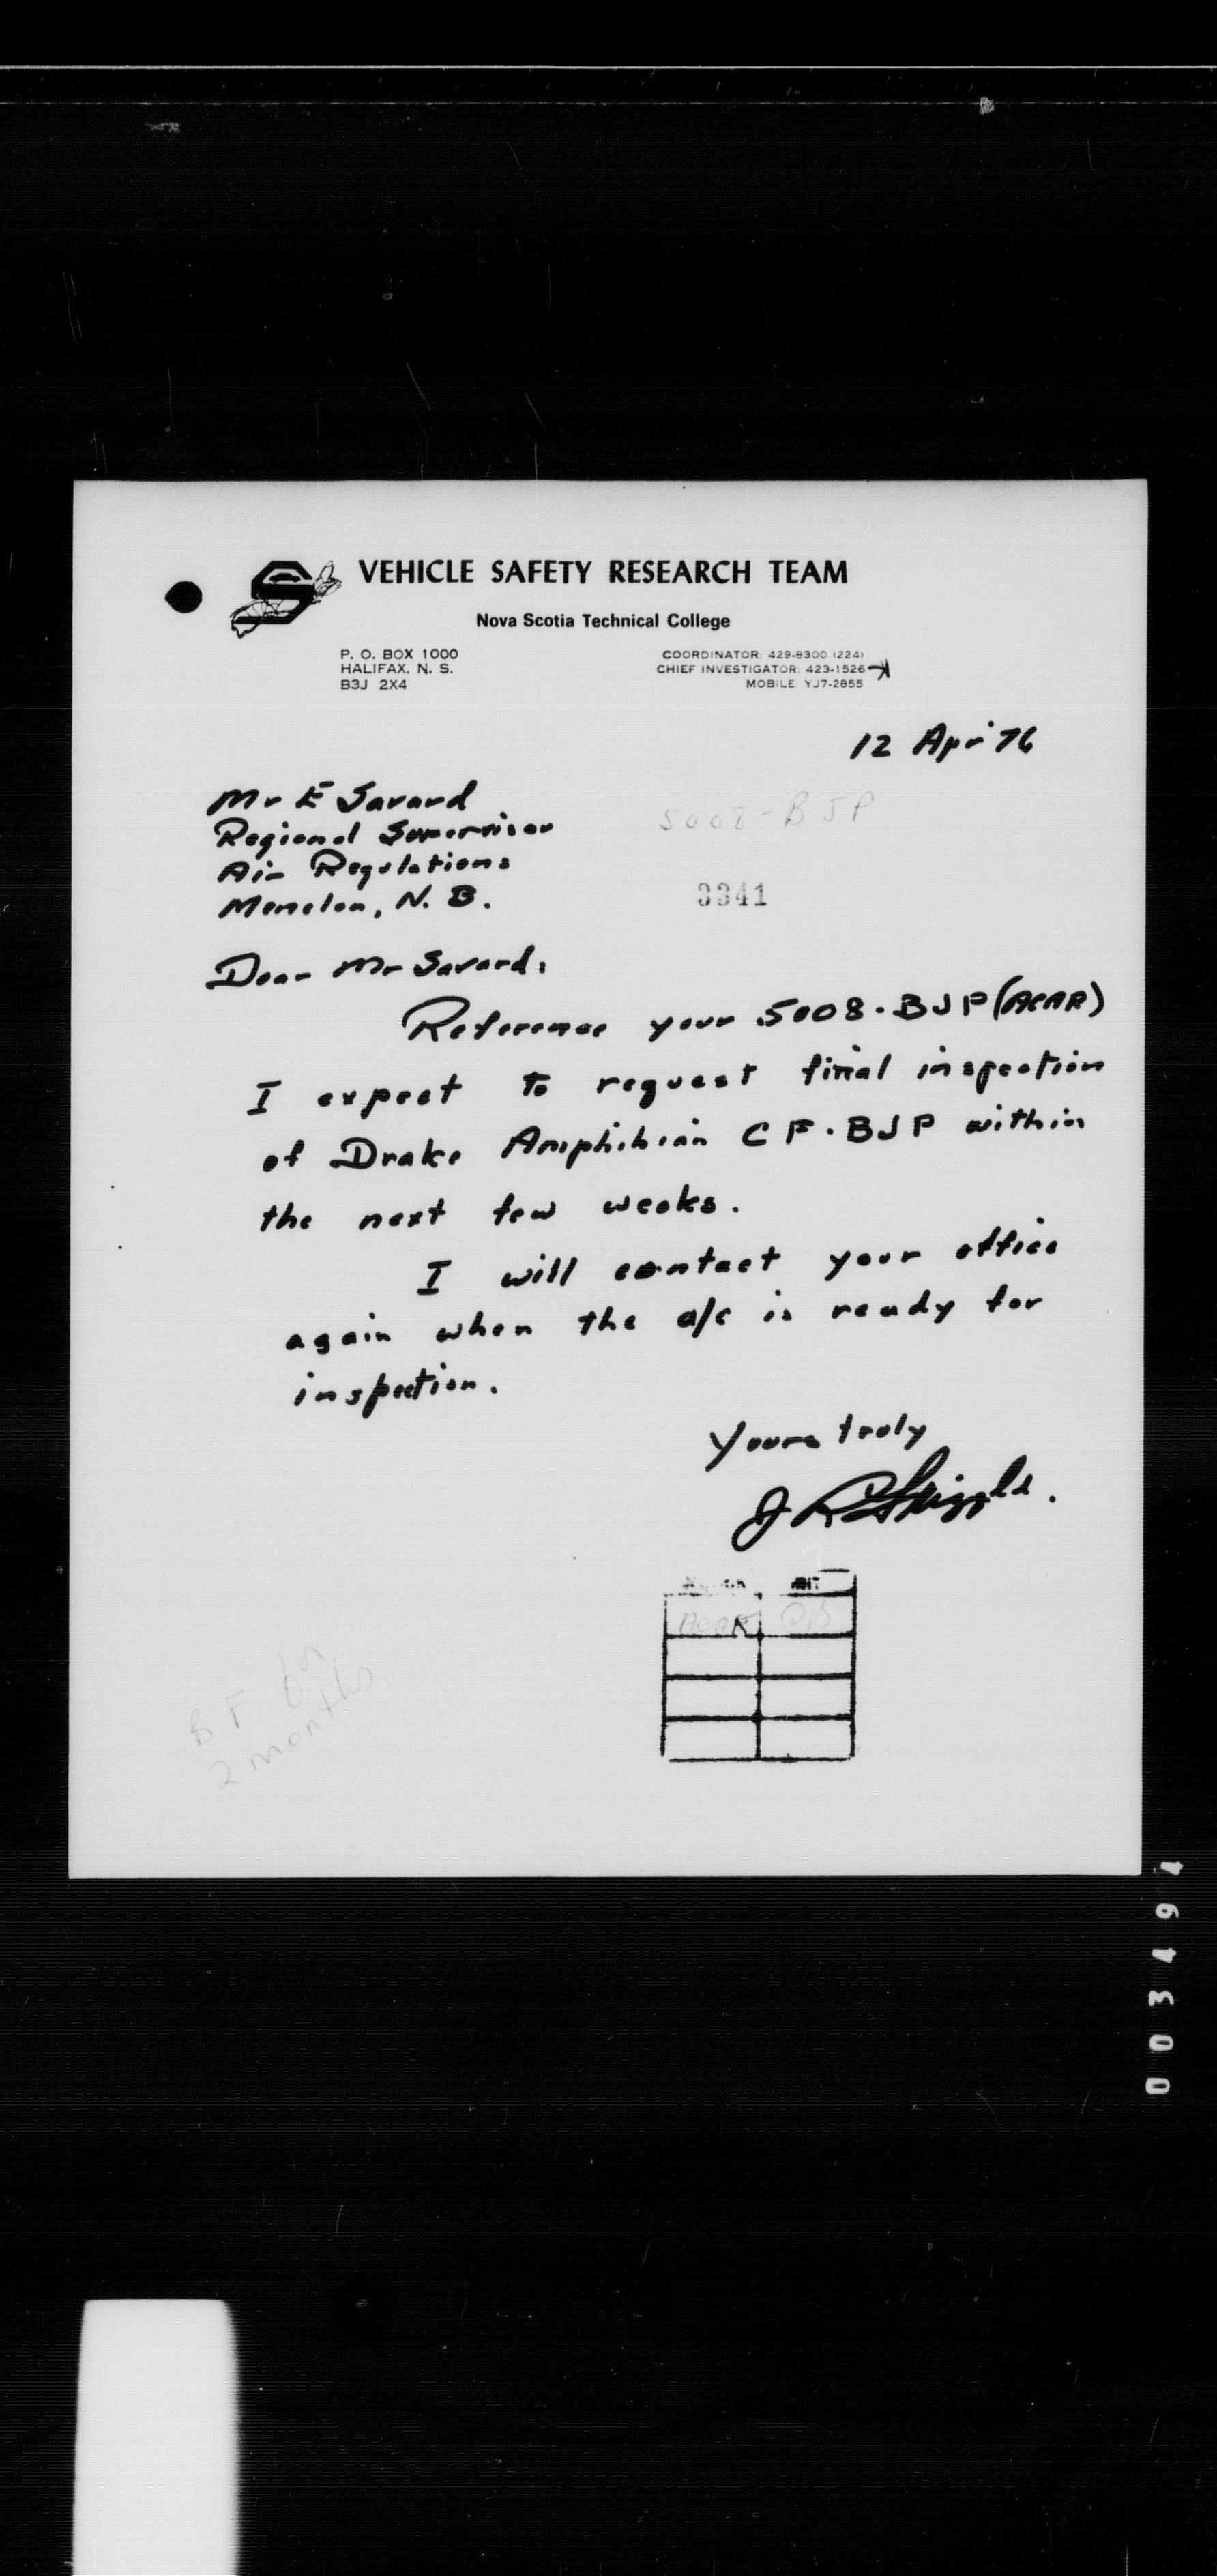 VEHICLE SAFETY RESEARCH TEAM
Nova Scotia Technical College
P. O. BOX 1000
HALIFAX, N. S.
B3J 2X4
COORDINATOR: 429-8300 (224)
CHIEF INVESTIGATOR: 423-1526
MOBILE: YJ7-2855
12 Apr 76
Mr E Savard
Regional Supervisor
Air Regulations
Moncton, N. B.
5008-BJP
3341
Dear Mr Savard,
Reference your 5008-BJP (ACAR)
I expect to request final inspection
of Drake Amphibian CF-BJP within
the next few weeks.
I will contact your office
again when the a/c is ready for
inspection.
Yours truly
J R
ACAR
B F. for
2 months
003494